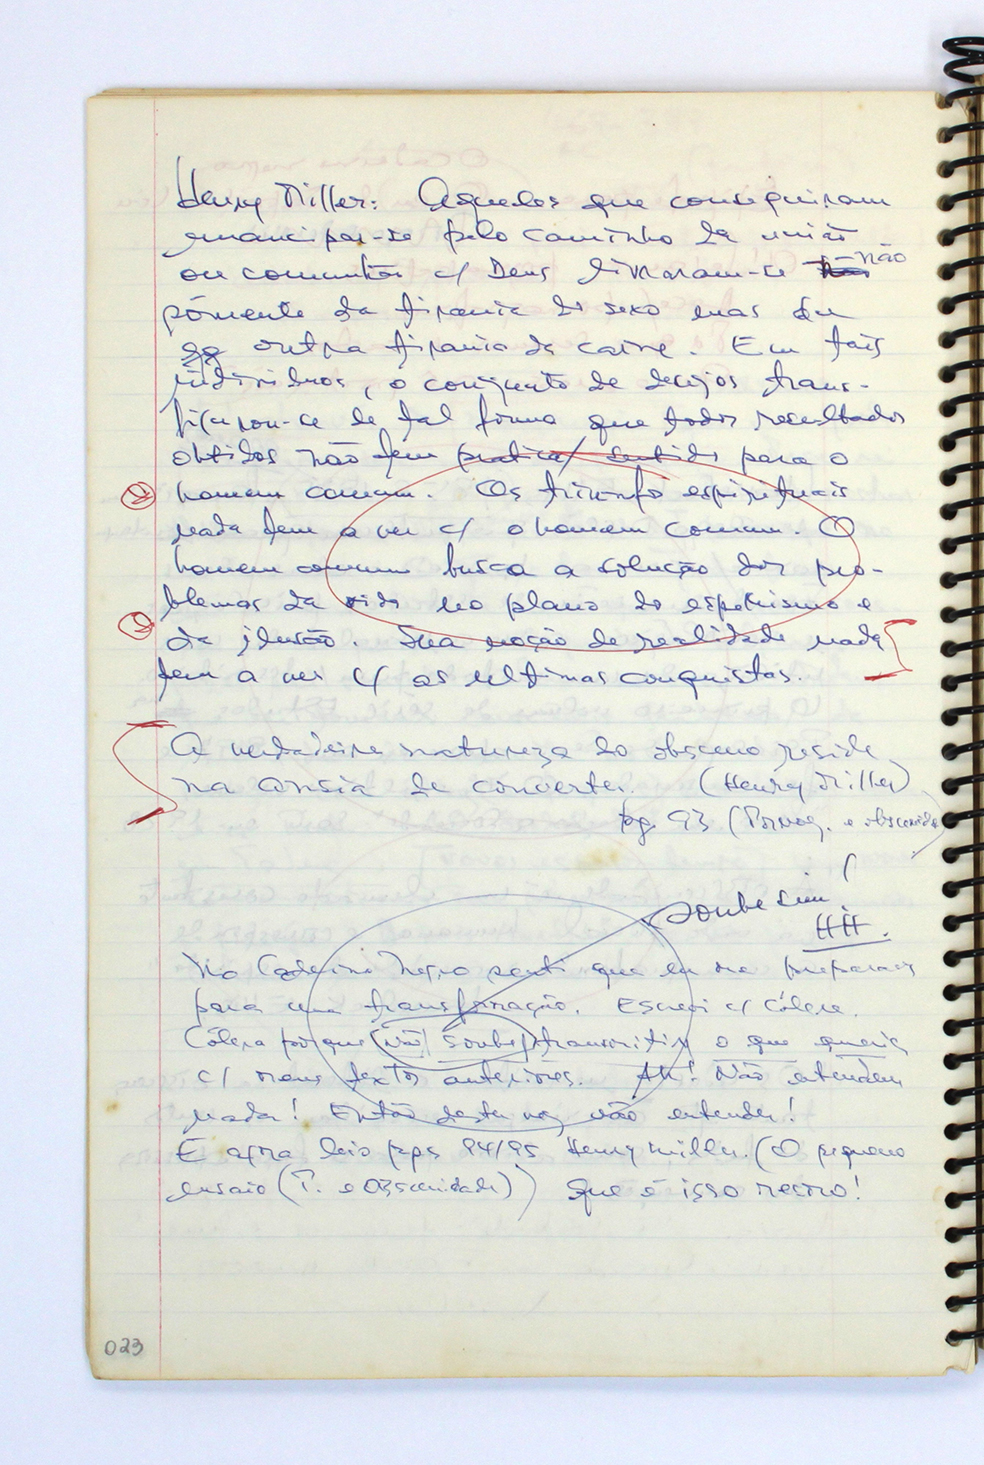 Henry Miller: Aqueles que conseguiram
emancipar-se pelo caminho da união
ou comunhão c/ Deus livraram-se não
sómente da tirania do sexo mas de
qq outra tirania da carne. Em tais
indivíduos, o conjunto de desejos trans-
figurou-se de tal forma que todos resultados
obtidos não tem pratica/ sentido para o
② homem comum. Os triunfos espirituais
nada tem a ver c/ o homem comum. O
homem comum busca a solução dos pro-
blemas da vida no plano do
② da ilusão. Sua noção de realidade nada
tem a ver c/ as ultimas conquistas.
A verdadeira natureza do obsceno reside
na ansia de converter. (Henry Miller)
pg. 93 (Pornog. e obscenidade)
soube sim!
HH.
No Caderno Negro senti que eu me preparava
para uma transformação. Escrevi c/ Cólera.
Cólera porque (não) soube transmitir o que queria
c/ meus textos anteriores. Ah! Não entendem
nada! Então desta vez vão entender!
E agora leio pgs 94/95 Henry Miller. (O pequeno
ensaio (P. e Obscenidade)) que é isso mesmo!
023